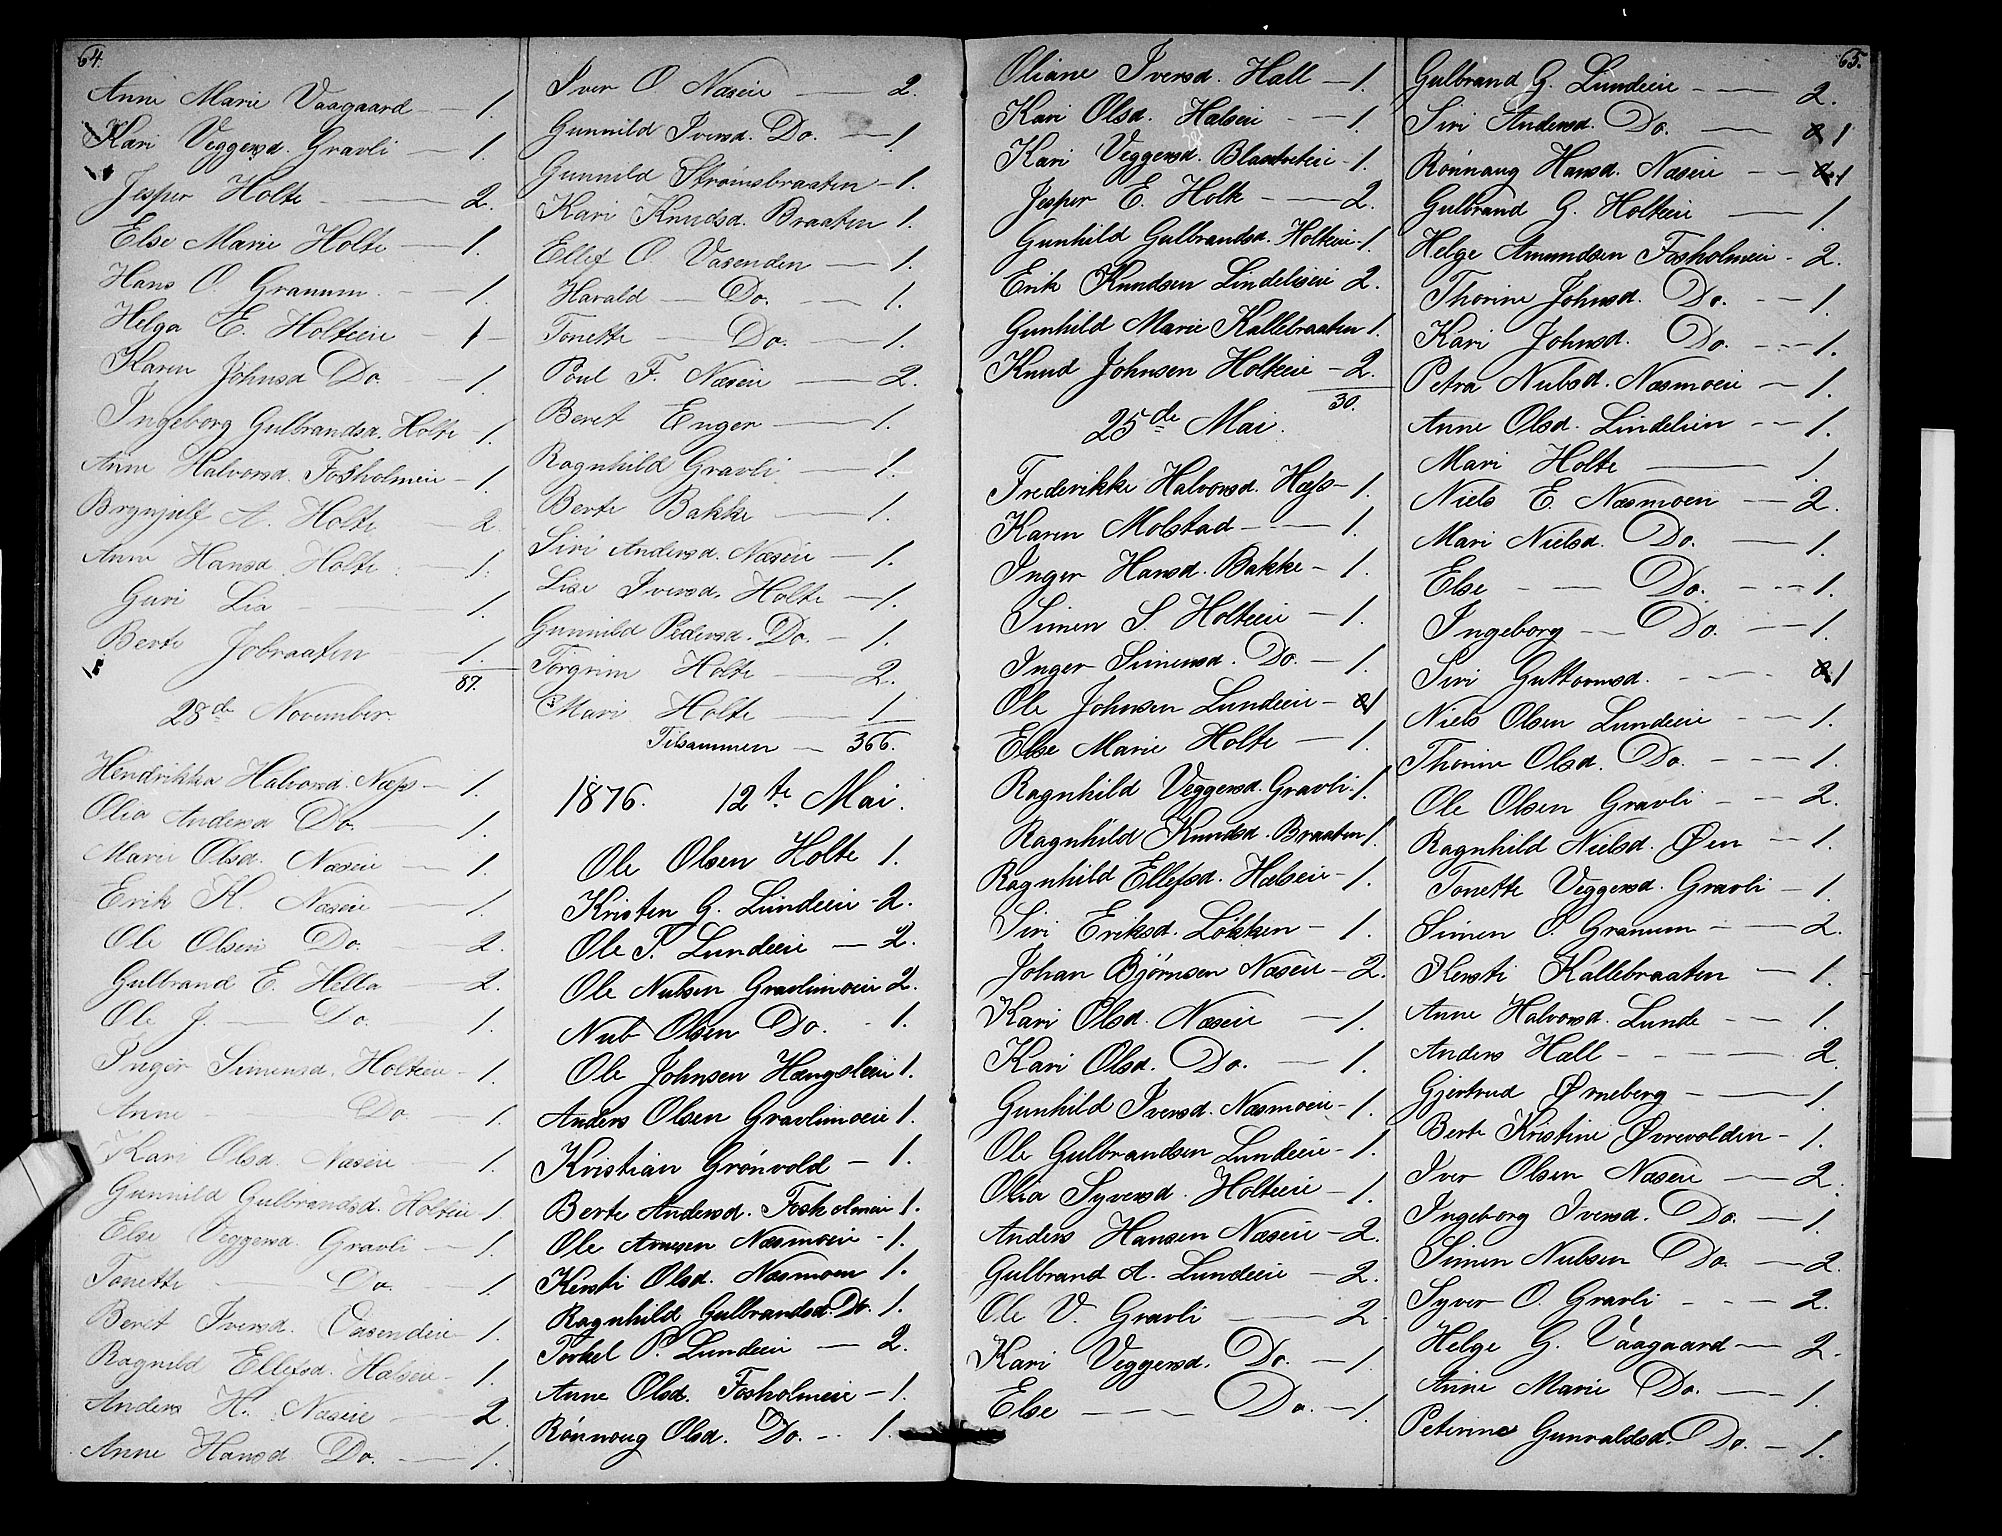 64.
Anne Marie Vaagaard — 1.
Kari Veggersd. Gravli — 1.
Jesper Holte — 2.
Else Marie Holte — 1.
Hans O. Granum — 1.
Helga E. Holteeie — 1
Karen Johnsd Do. — 1.
Ingeborg Gulbrandsd. Holte — 1.
Anne Halvorsd. Fosholmeie — 1.
Brynjulf A. Holte 2.
Anne Hansd. Holte — 1.
Guri Lia — 1.
Berte Jobraaten — 1.
87.
28de November.
Hendrikka Halvorsd. Næss — 1.
Olia Andersd Do. — 1.
Marie Olsd. Næseie — 1.
Erik K. Næseie — 1.
Ole Olsen Do. — 2.
Gulbrand E. Hella — 2.
Ole J. — Do. 1.
Inger Simensd. Holteeie — 1.
Anne — Do — 1.
Kari Olsd. Næseie — 1.
Gunnild Gulbrandsd. Holteeie — 1.
Else Veggersd. Gravli — 1.
Tonette — Do. — 1.
Beret Iversd. Vasendeie — 1.
Ragnild Ellefsd. Halseie — 1.
Anders H. Næseie — 2.
Anne Hansd Do. — 1.
Iver O Næseie — 2.
Gunnild Iversd. Do. — 1.
Gunnild Strømsbraaten — 1.
Kari Knudsd. Braaten 1.
Ellef O. Vasenden — 1.
Harald — Do. — 1.
Tonette — Do. — 1.
Poul F. Næseie — 2.
Beret Enger — 1.
Ragnhild Gravli — 1.
Berte Bakke — 1.
Siri Andersd. Næseie — 1.
Lise Iversd. Holte — 1.
Gunnild Pedersd. Do. — 1.
Torgrim Holte — 2.
Mari Holte — 1
Tilsammen — 366.
1876. 12te Mai.
Ole Olsen Holte 1.
Kristen G. Lundeeie - 2.
Ole P. Lundeeie — 2.
Ole Nubsen Gravlimoeie 2.
Nub Olsen Do. - 1.
Ole Johnsen Hængsleeie 1.
Anders Olsen Gravlimoeie 1.
Kristian Grönvold — 1.
Berte Andersd. Fosholmeie 1.
Ole Arnesen Næsmoeie - 1.
Kersti Olsd. Næsmoen 1.
Ragnhild Gulbrandsd. Do. 1.
Torkel P. Lundeeie — 2.
Anne Olsd. Fosholmeie — 1.
Rönnoug Olsd. Do. - 1.
65.
Oliane Iversd. Hall — 1.
Kari Olsd. Halseie — 1.
Kari Veggersd. — 1.
Jesper E. Holte — 2.
Gunhild Gulbrandsd. Holteeie - 1.
Erik Knudsen Lindelieeie 2.
Gunhild Marie Kallebraaten 1.
Knud Johnsen Holteeie — 2.
30.
25de Mai.
Frederikke Halvorsd. Hæss — 1.
Karen Molstad — 1.
Inger Hansd. Bakke — 1.
Simen S. Holteeie — 1.
Inger Simensd. Do. — 1.
Ole Johnsen Lundeeie — 1
Else Marie Holte — 1.
Ragnhild Veggersd. Gravli - 1.
Ragnhild Knudsd. Braaten 1.
Ragnhild Ellefsd. Halseie — 1.
Siri Eriksd. Lökken — 1.
Johan Bjørnsen Næseie — 2.
Kari Olsd. Næseie — 1.
Kari Olsd. Do. — 1.
Gunhild Iversd. Næsmoeie — 1.
Ole Gulbrandsen Lundeeie — 1.
Olia Syversd. Holteeie — 1.
Anders Hansen Næseie — 2.
Gulbrand A. Lundeeie — 2.
Ole V. Gravli — 2.
Kari Veggersd. Do. — 1.
Else — Do. — 1.
Gulbrand G. Lundeeie — 2.
Siri Andersd. Do. — 1
Rönnaug Hansd. Næseie — 1
Gulbrand G. Holteeie — 1.
Helge Amundsen Fosholmeie - 2.
Thorine Johnsd. Do. — 1.
Kari Johnsd. Do. — 1.
Petra Nubsd. Næsmoeie — 1.
Anne Olsd. Lindelien — 1.
Mari Holte — 1.
Niels E. Næsmoen — 2.
Mari Nielsd. Do. — 1.
Else — Do. — 1.
Ingeborg — Do. — 1.
Siri Guttormsd. — 1
Niels Olsen Lundeeie — 1.
Thorine Olsd. Do. — 1.
Ole Olsen Gravli — 2.
Ragnhild Nielsd. Øen — 1.
Tonette Veggersd. Gravli — 1.
Simen O. Granum — 2.
Kersti Kallebraaten — 1.
Anne Halvorsd. Lunde — 1.
Anders Hall — 2.
Gjertrud Ørneberg — 1.
Berte Kristine Øvrevolden — 1.
Iver Olsen Næseie — 2.
Ingeborg Iversd. Do. — 1.
Simen Nubsen Do. — 2.
Syver O. Gravli — 2.
Helge G. Vaagaard — 2.
Anne Marie Do. — 1.
Peterine Gunvaldsd. Do. — 1.